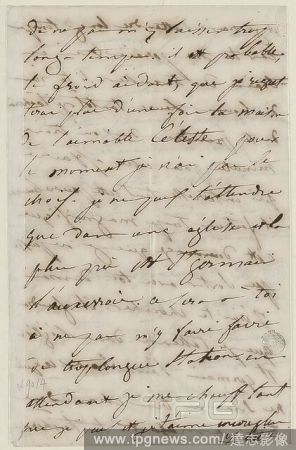 de ne pas m'y laisser trop
longtemps. il est probable,
le froid aidant, que je
plus d'une fois la main
de l'aimable Céleste pour
le moment je n'ai pas le
choix. je ne puis t'attendre
que dans une église et la
plus près est St Germain
l'auxerrois. ce sera à toi
à ne pas m'y faire faire
de trop longues stations en
attendant je me chauffe tant
que je puis et t'aime
www.tpgnews.com 達志影像